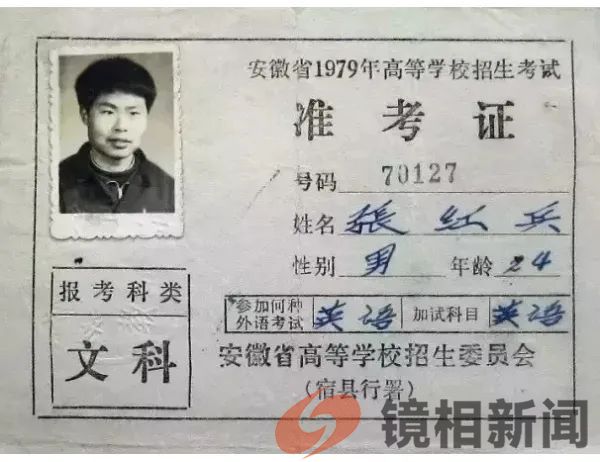 安徽省1979年高等学校招生考试
准考证
号码 70127
姓名 張红兵
性别 男 年龄 24
报考科类
文科
参加何种外语考试 英语 加试科目 英语
安徽省高等学校招生委员会
(宿县行署)
镜相新闻